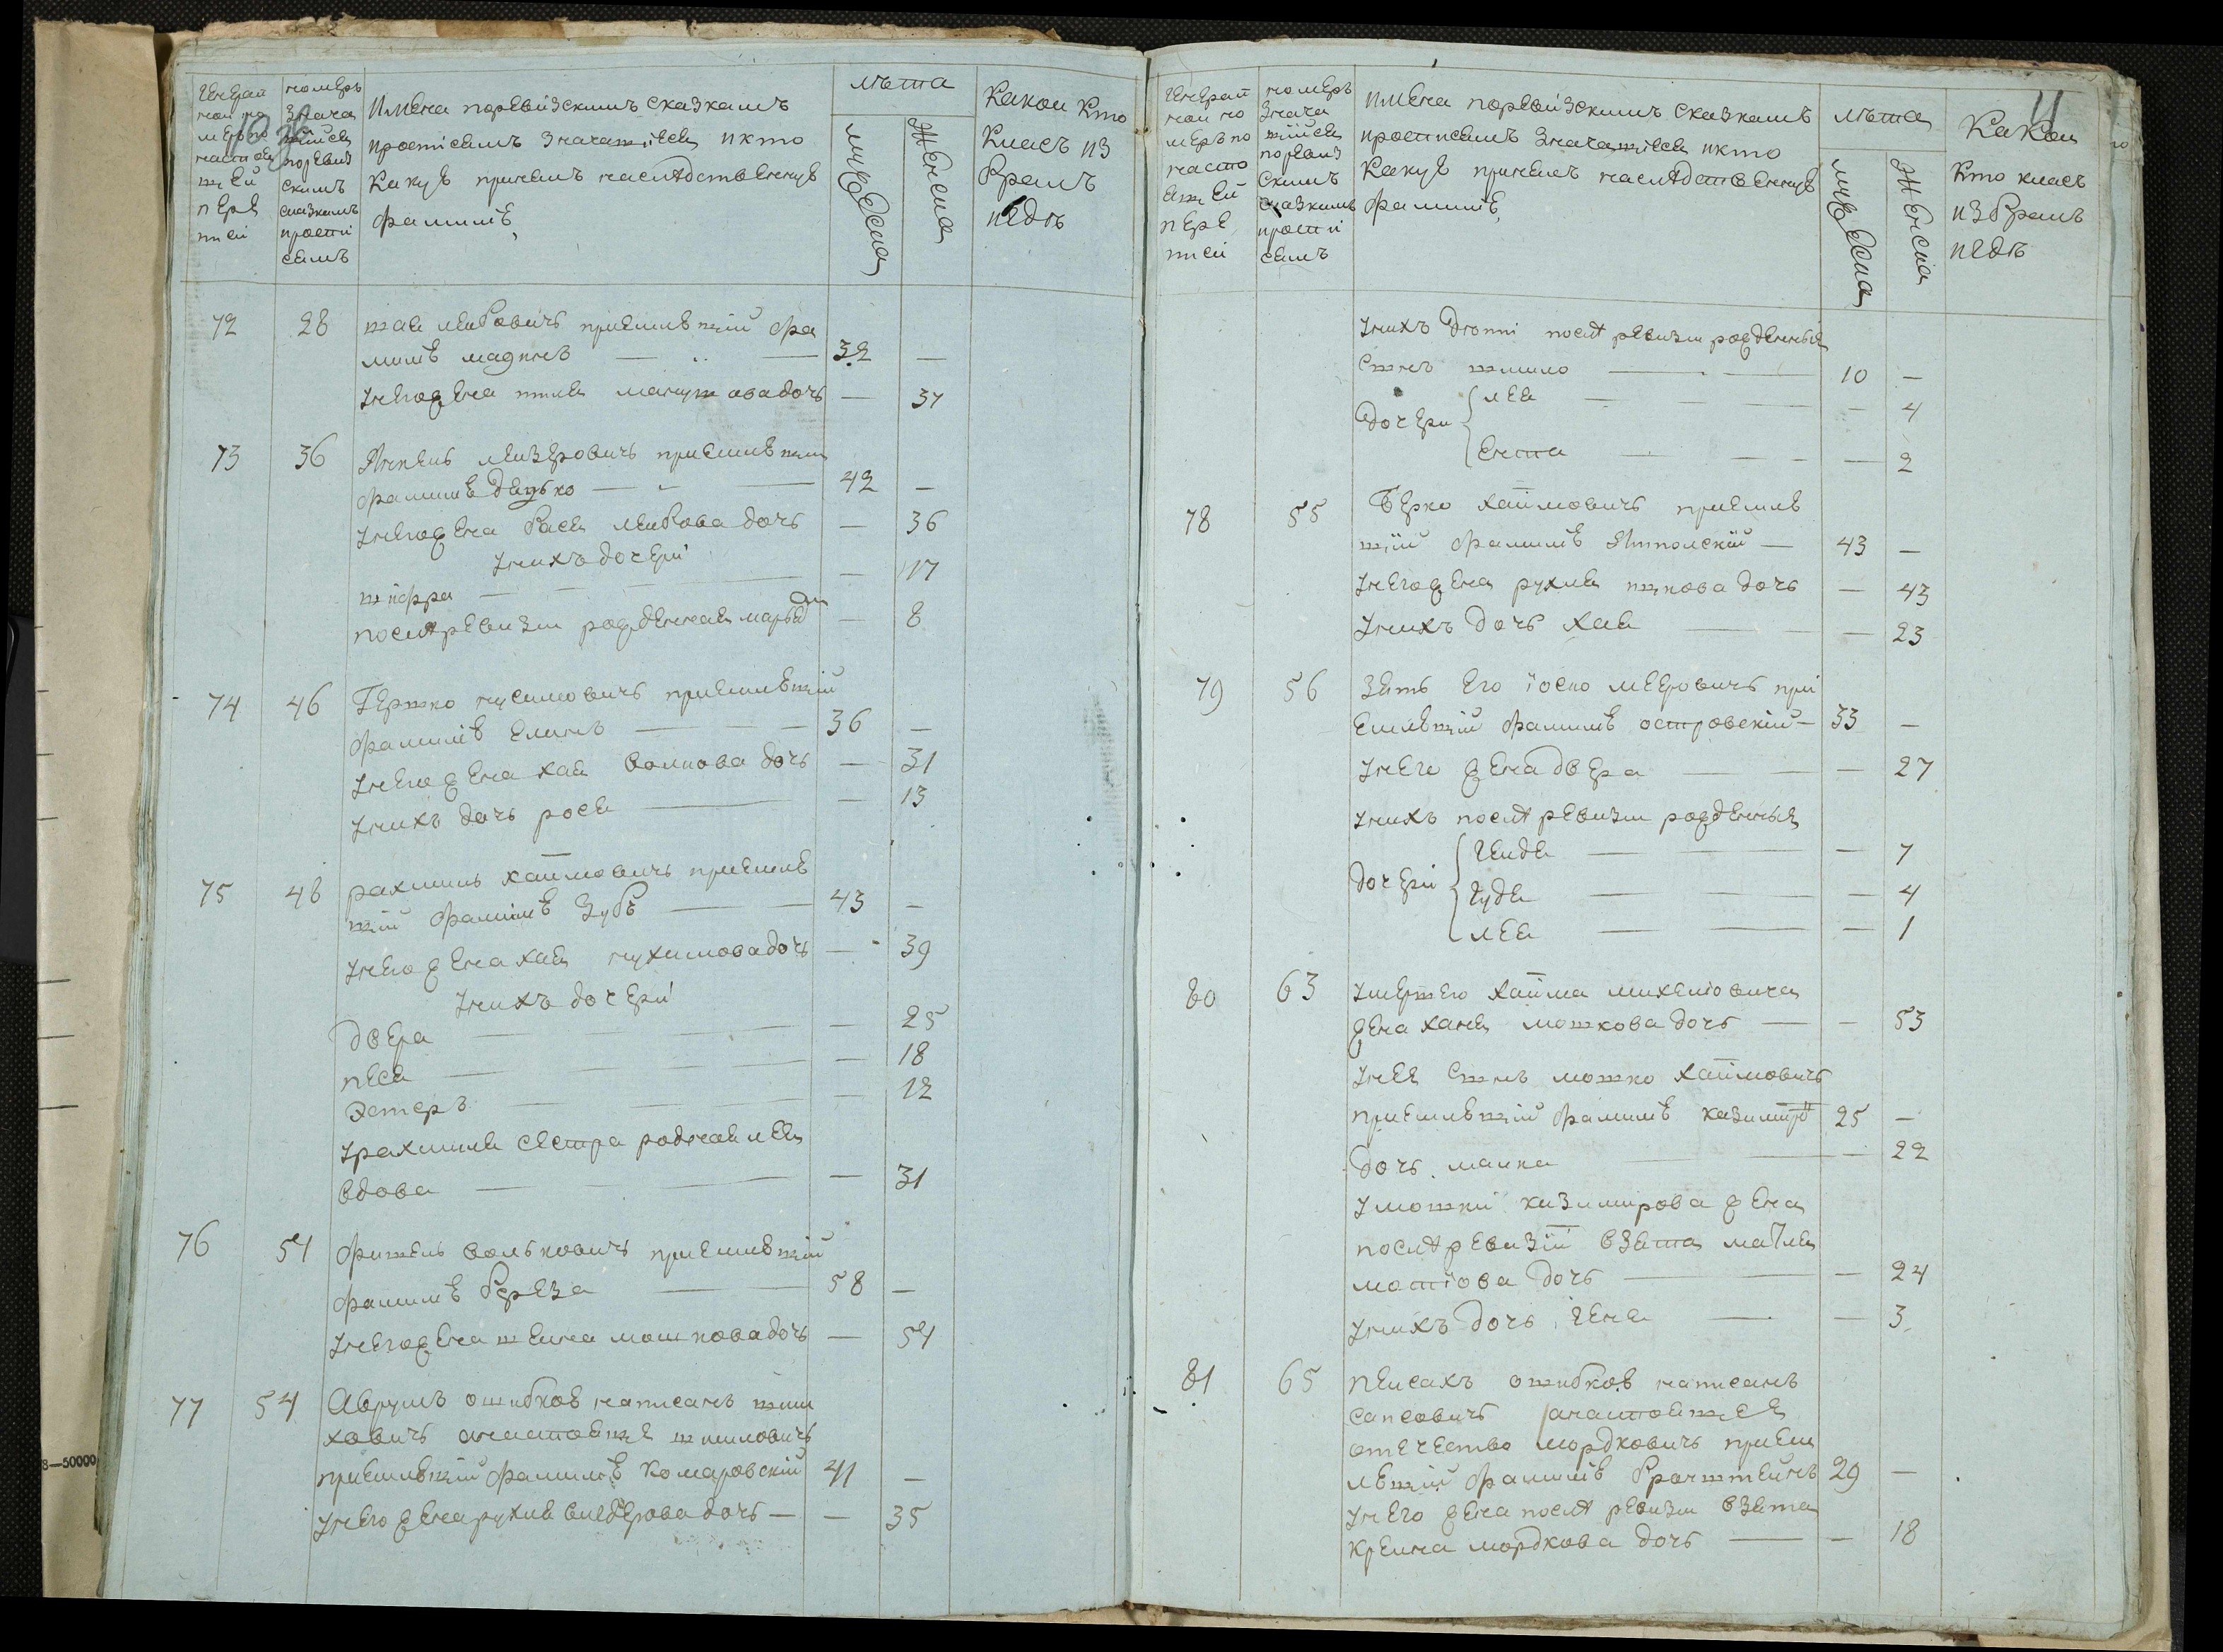 Генерал
ной но
меръ по
насто
ящей
пере
писи
номеръ
Знача
щійся
поревиз
скимъ
сказкамъ
прошлі
самъ
Имена поревизскимъ сказкамъ
прописанъ Значащіеся и кто
Какую принялъ наследственную
фамилію
лѣта
мужеска
женска
Какой Кто
Класъ из
бралъ
и гдѣ
72 28 шая лейбовичъ принявшій фа
милію
32 —
У него жена дочь — 37
73 36 Янкель лейзеровичъ принявшій
фамилію 42 —
У него жена бася лейбова дочь — 36
У нихъ дочери
шифра — 17
после ревизіи рожденная — 8
74 46 Гершко нусимовичъ принявшій
фамилію 36 —
У него жена хая волкова дочь — 31
У нихъ дочь рося — 13
75 48 рахмиль хаимовичъ приняв
шій фамилію Зубъ 43 —
У него жена хая нухимова дочь — 39
У нихъ дочери
двера — 25
песя — 18
Эстеръ — 12
У рахмиля сестра родная лея
вдова — 31
76 51 фишель волковичъ принявшій
фамилію береза 58 —
У него жена шейна мошкова дочь — 51
77 54 Аврумъ ошибкою написанъ
ховичъ анастоящѣ шмиловичъ
принявшій фамилію Комаровскій 41 —
У него жена рухля дочь — 35
11
Генерал
ной но
меръ по
насто
ящей
пере
писи
номеръ
Знача
щійся
поревиз
скимъ
сказкамъ
прошлі
самъ
Имена поревизскимъ сказкамъ
прописанъ Значащіеся и кто
Какую принялъ наследственную
фамилію
лѣта
мужеска
женска
Какой
Кто класъ
избралъ
и гдѣ
У нихъ после ревизіи рожденныя
Сынъ шлиомо 10 —
дочери лея — 4
Ента — 2
78 55 Берко хаимовичъ приняв
шій фамилію Ямполскій — 43 —
У него жена рухля ицкова дочь — 43
У нихъ дочь хая — 23
79 56 Зять его іоспо мееровичъ при
нявшій фамилію островскій — 33 —
У него жена двера — 27
У нихъ после ревизіи рожденныя
дочери гендя — 7
гудя — 4
лея — 1
80 63 Умершего хаима михелювича
жена ханя мошкова дочь — 53
У нея Сынъ мошко хаимовичъ
принявшій фамилію казимиръ 25 —
дочь малка — 22
У мошки казимирова жена
после ревизіи взята
мотіова дочь — 24
У нихъ дочь геня — 3
81 65 пейсахъ ошибкою написанъ
анастоящее
отечество мордковичъ приня
вшій фамилію бронштейнъ 29 —
У него жена после ревизіи взята
Крейна мордкова дочь — 18